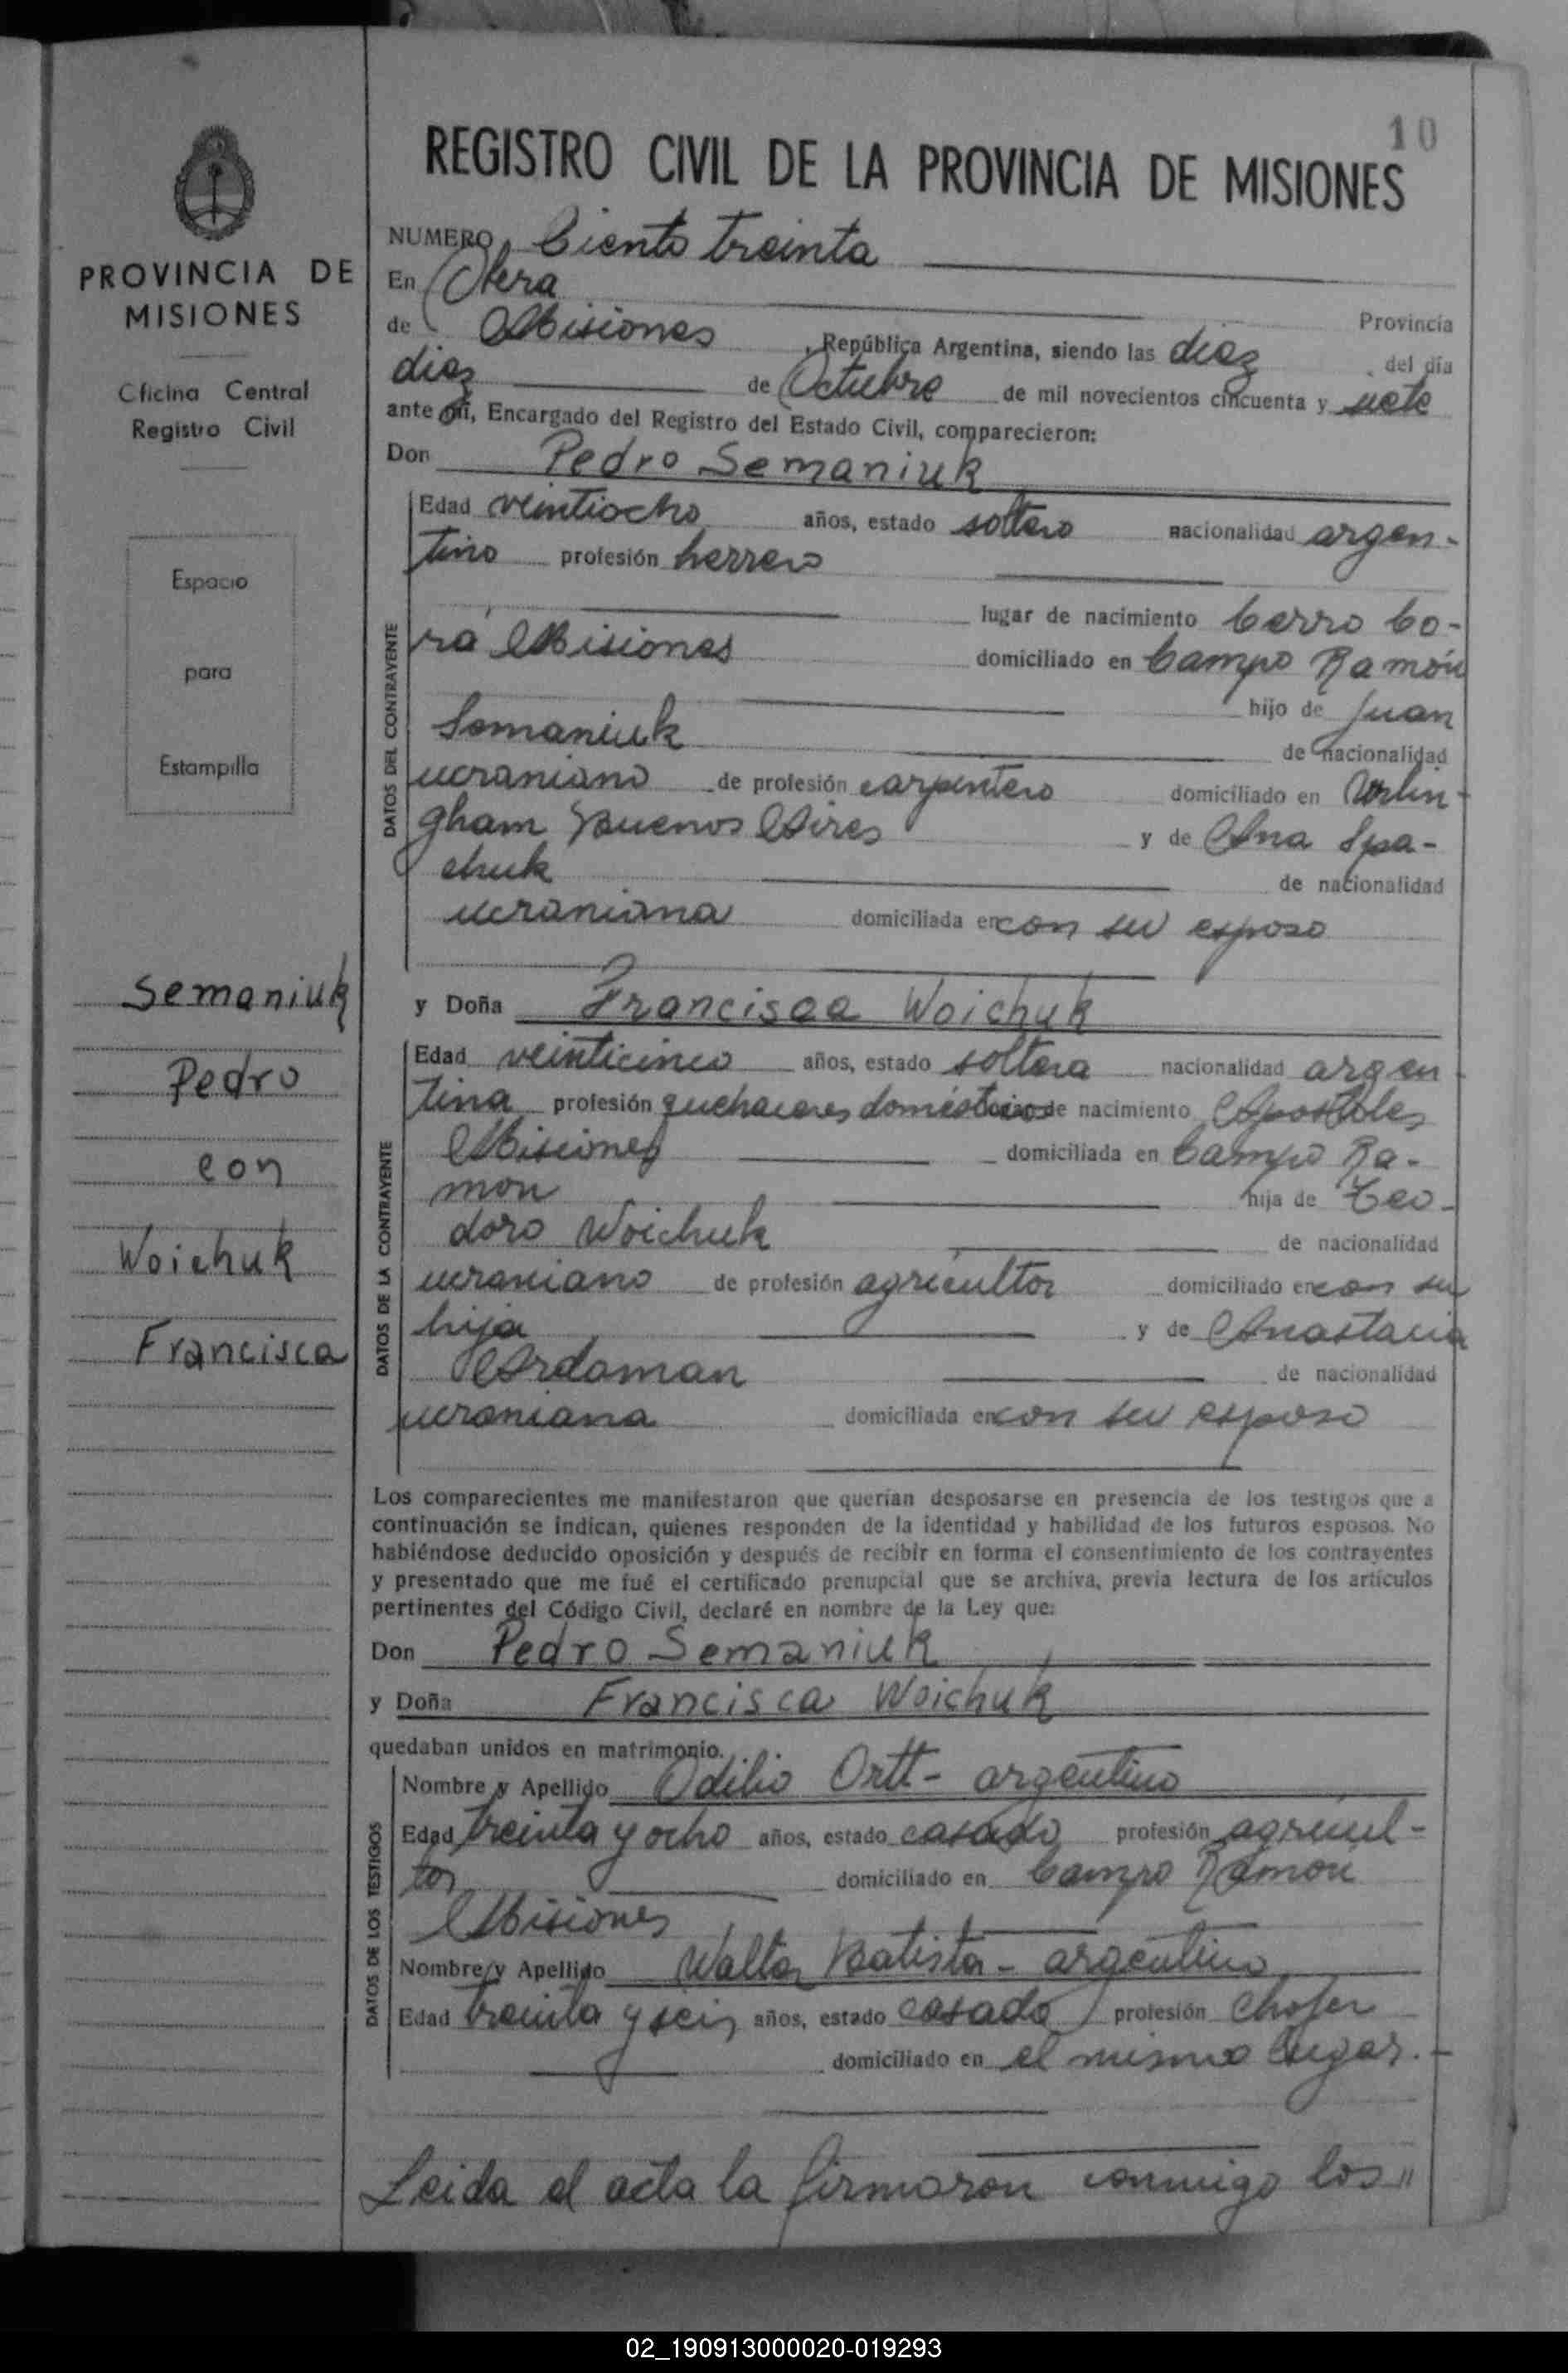 10
REGISTRO CIVIL DE LA PROVINCIA DE MISIONES
PROVINCIA DE
MISIONES
Oficina Central
Registro Civil
Espacio
para
Estampilla
Semaniuk
Pedro
con
Woichuk
Francisca
NUMERO Ciento treinta
En Obera
Provincia
de Misiones, República Argentina, siendo las diez del día
diez de Octubre de mil novecientos cincuenta y siete
ante mí, Encargado del Registro del Estado Civil, comparecieron:
Don Pedro Semaniuk
DATOS DEL CONTRAYENTE
Edad veintiocho años, estado soltero nacionalidad argen-
tino profesión herrero
lugar de nacimiento Cerro Co-
rá Misiones domiciliado en Campo Ramón
hijo de Juan
Semaniuk de nacionalidad
ucraniano de profesión carpintero domiciliado en Urlin-
gham Buenos Aires y de Ana Spa-
chuk de nacionalidad
ucraniana domiciliada en con su esposo
y Doña Francisca Woichuk
DATOS DE LA CONTRAYENTE
Edad veinticinco años, estado soltera nacionalidad argen-
tina profesión quehaceres domésticos de nacimiento Apóstoles
Misiones domiciliada en Campo Ra-
mon hija de Teo-
doro Woichuk de nacionalidad
ucraniano de profesión agricultor domiciliado en con su
hija y de Anastacia
Ardaman de nacionalidad
ucraniana domiciliada en con su esposo
Los comparecientes me manifestaron que querían desposarse en presencia de los testigos que a
continuación se indican, quienes responden de la identidad y habilidad de los futuros esposos. No
habiéndose deducido oposición y después de recibir en forma el consentimiento de los contrayentes
y presentado que me fué el certificado prenupcial que se archiva, previa lectura de los artículos
pertinentes del Código Civil, declaré en nombre de la Ley que:
Don Pedro Semaniuk
y Doña Francisca Woichuk
quedaban unidos en matrimonio.
DATOS DE LOS TESTIGOS
Nombre y Apellido Odilio Ortt - argentino
Edad treinta y ocho años, estado casado profesión agricul-
tor domiciliado en Campo Ramón
Misiones
Nombre y Apellido Walter Batista - argentino
Edad treinta y seis años, estado casado profesión chofer
domiciliado en el mismo lugar.-
Leida el acta la firmaron conmigo los "
02_190913000020-019293